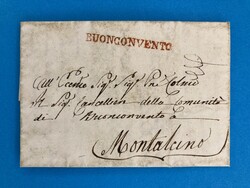 BUONCONVENTO
All' Sig. Sig.
Il Sig. Cancelliere della Comunità
di Buonconvento a
Montalcino